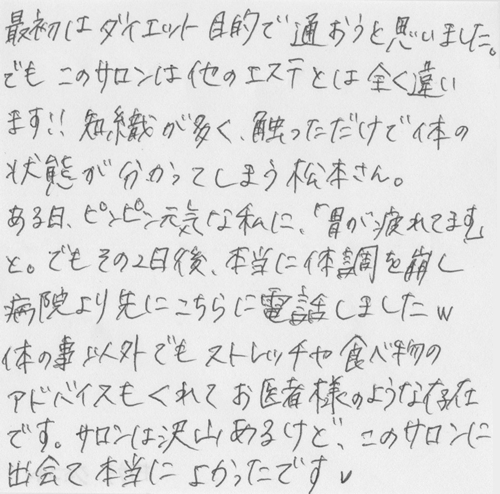 最初はダイエット目的で通おうと思いました。
でもこのサロンは他のエステとは全く違い
ます!! 知織が多く、触っただけで体の
状態が分かってしまう松本さん。
ある日、ピンピン元気な私に、「胃が疲れてます」
と。でもその2日後、本当に体調を崩し
病院より先にこちらに電話しましたw
体の事以外でもストレッチや食べ物の
アドバイスもくれてお医者様のような存在
です。サロンは沢山あるけど、このサロンに
出会て本当によかったです